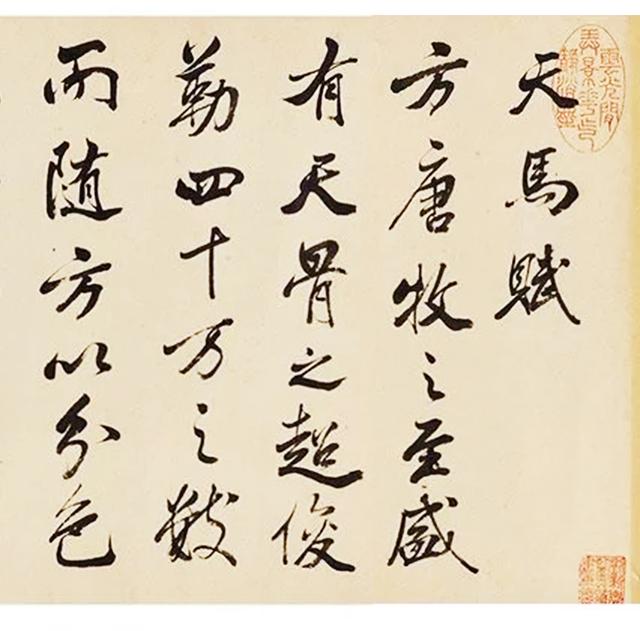 天馬賦
方唐牧之至盛
有天骨之超俊
勒四十万之數
而随方以分色